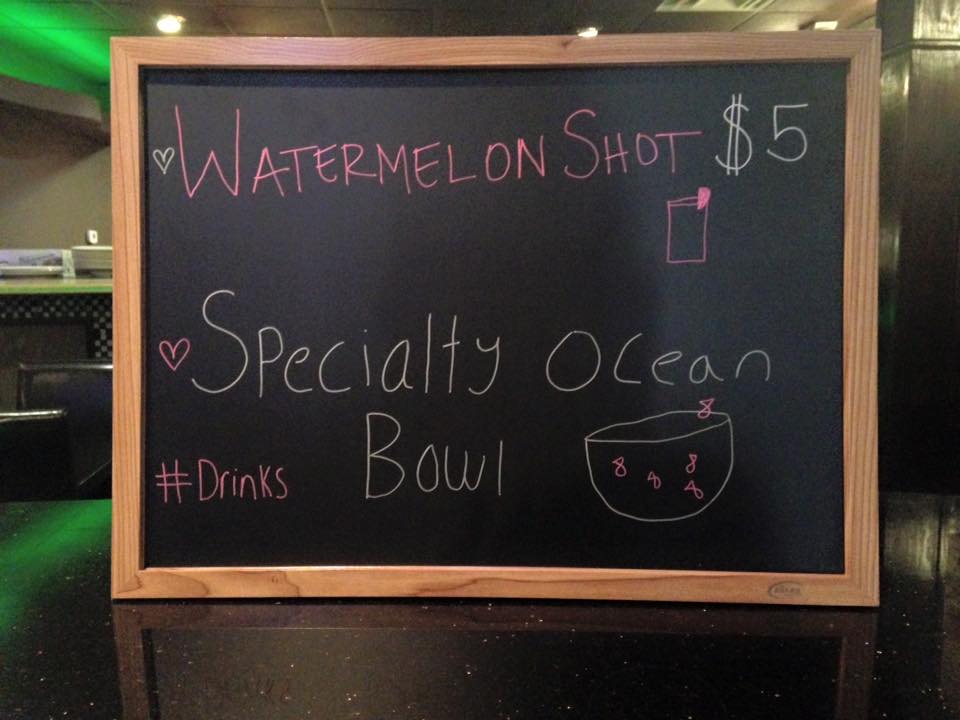 ♡ WATERMELON SHOT $5
♡ Specialty Ocean
Bowl
#Drinks